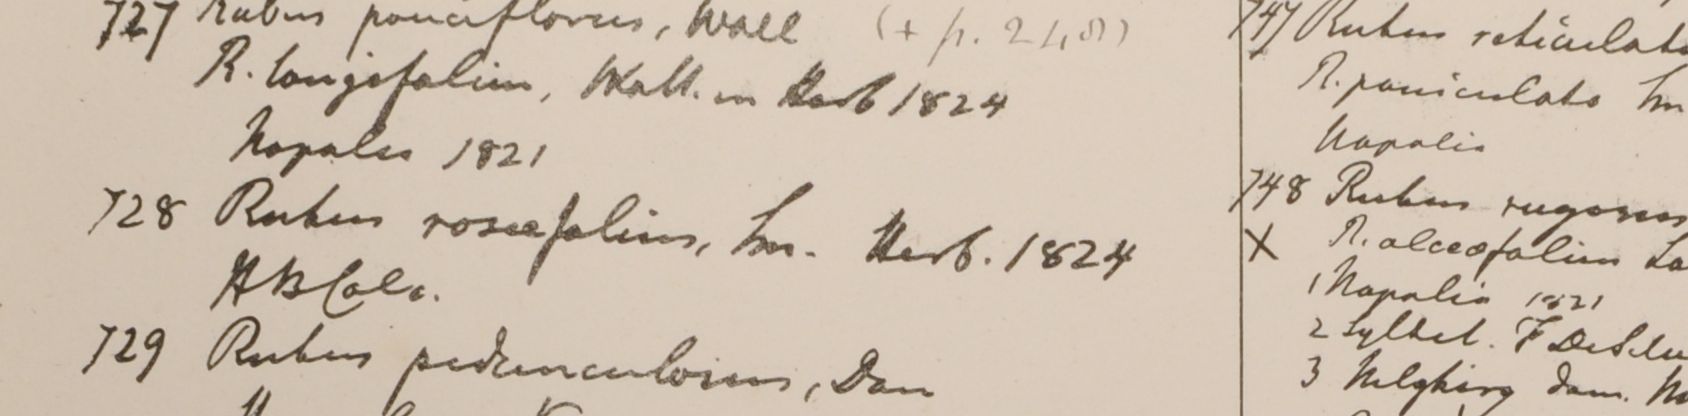 727 Rubus pauciflorus, Wall (+ p. 248)
R. longifolius, Wall. in Herb 1824
Napalia 1821
728 Rubus rosaefolius, Sm. Herb. 1824
HBCalc.
729 Rubus pedunculosus, Don
747 Rubus reticulatu
R. paniculatus Sm
Napalia
748 Rubus rugosus
X R. alceaefolius La
1 Napalia 1821
2 Sylhet. F DeSilv
3 Nilghiry dom.